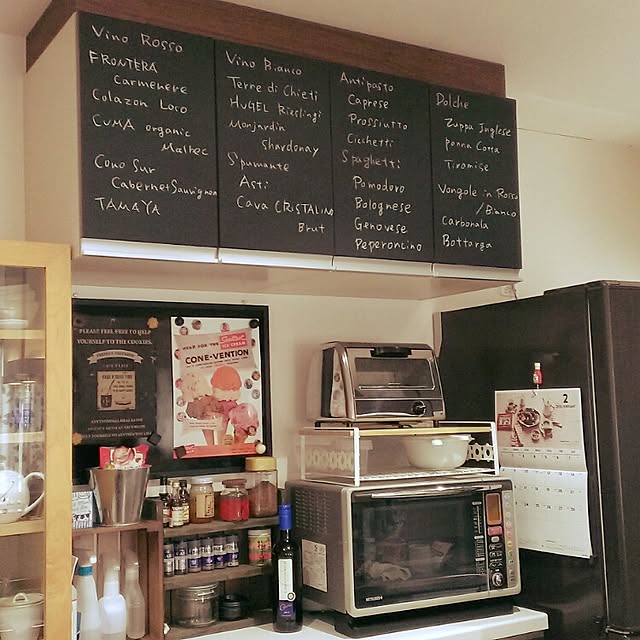 Vino Rosso
FRONTERA
Carmenere
Colazon Loco
CUMA organic
Malbec
Cono Sur
Cabernet Sauvignon
TAMAYA
Vino Bianco
Terre di Chieti
HUGEL Rieslingi
Monjardin
shardonay
Spumante
Asti
Cava CRISTALINO
Brut
Antipasto
Caprese
Prosciutto
Cicchetti
Spaghetti
Pomodoro
Bolognese
Genovese
Peperoncino
Dolche
Zuppa Inglese
panna Cotta
Tiramise
Vongole in Rosso
/Bianco
Carbonala
Bottarga
PLEASE FEEL FREE TO HELP
YOURSELF TO THE COOKIES.
ICE CREAM
CONE-VENTION
2
MITSUBISHI